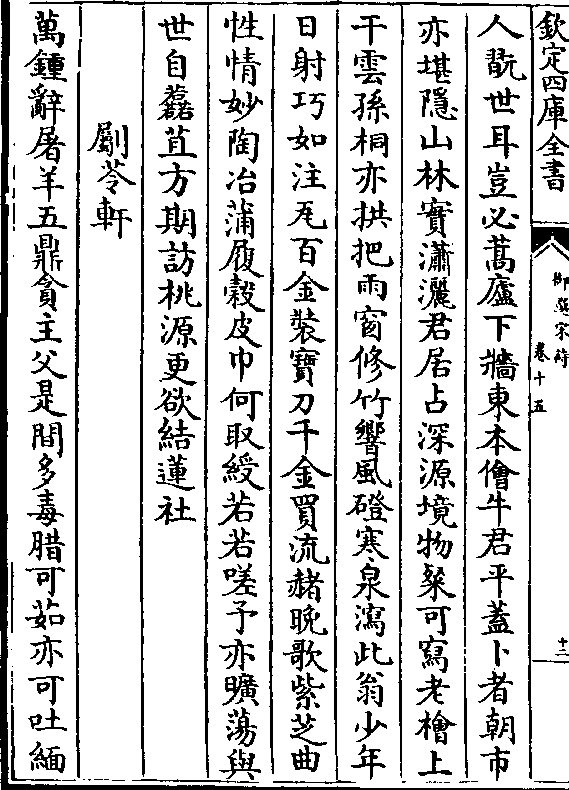 欽定四庫全書
御選宋詩
卷十五
十三
人翫世耳豈必蒿廬下牆東本儈牛君平蓋卜者朝市
亦堪隱山林實瀟灑君居占深源境物粲可寫老檜上
干雲孫桐亦拱把雨窗修竹響風磴寒泉瀉此翁少年
日射巧如注瓦百金裝寶刀千金買流赭晚歌紫芝曲
性情妙陶冶蒲履榖皮巾何取綬若若嗟予亦曠蕩與
世自蘁苴方期訪桃源更欲結蓮社
劚苓軒
萬鍾辭屠羊五鼎貪主父是間多毒腊可茹亦可吐緬